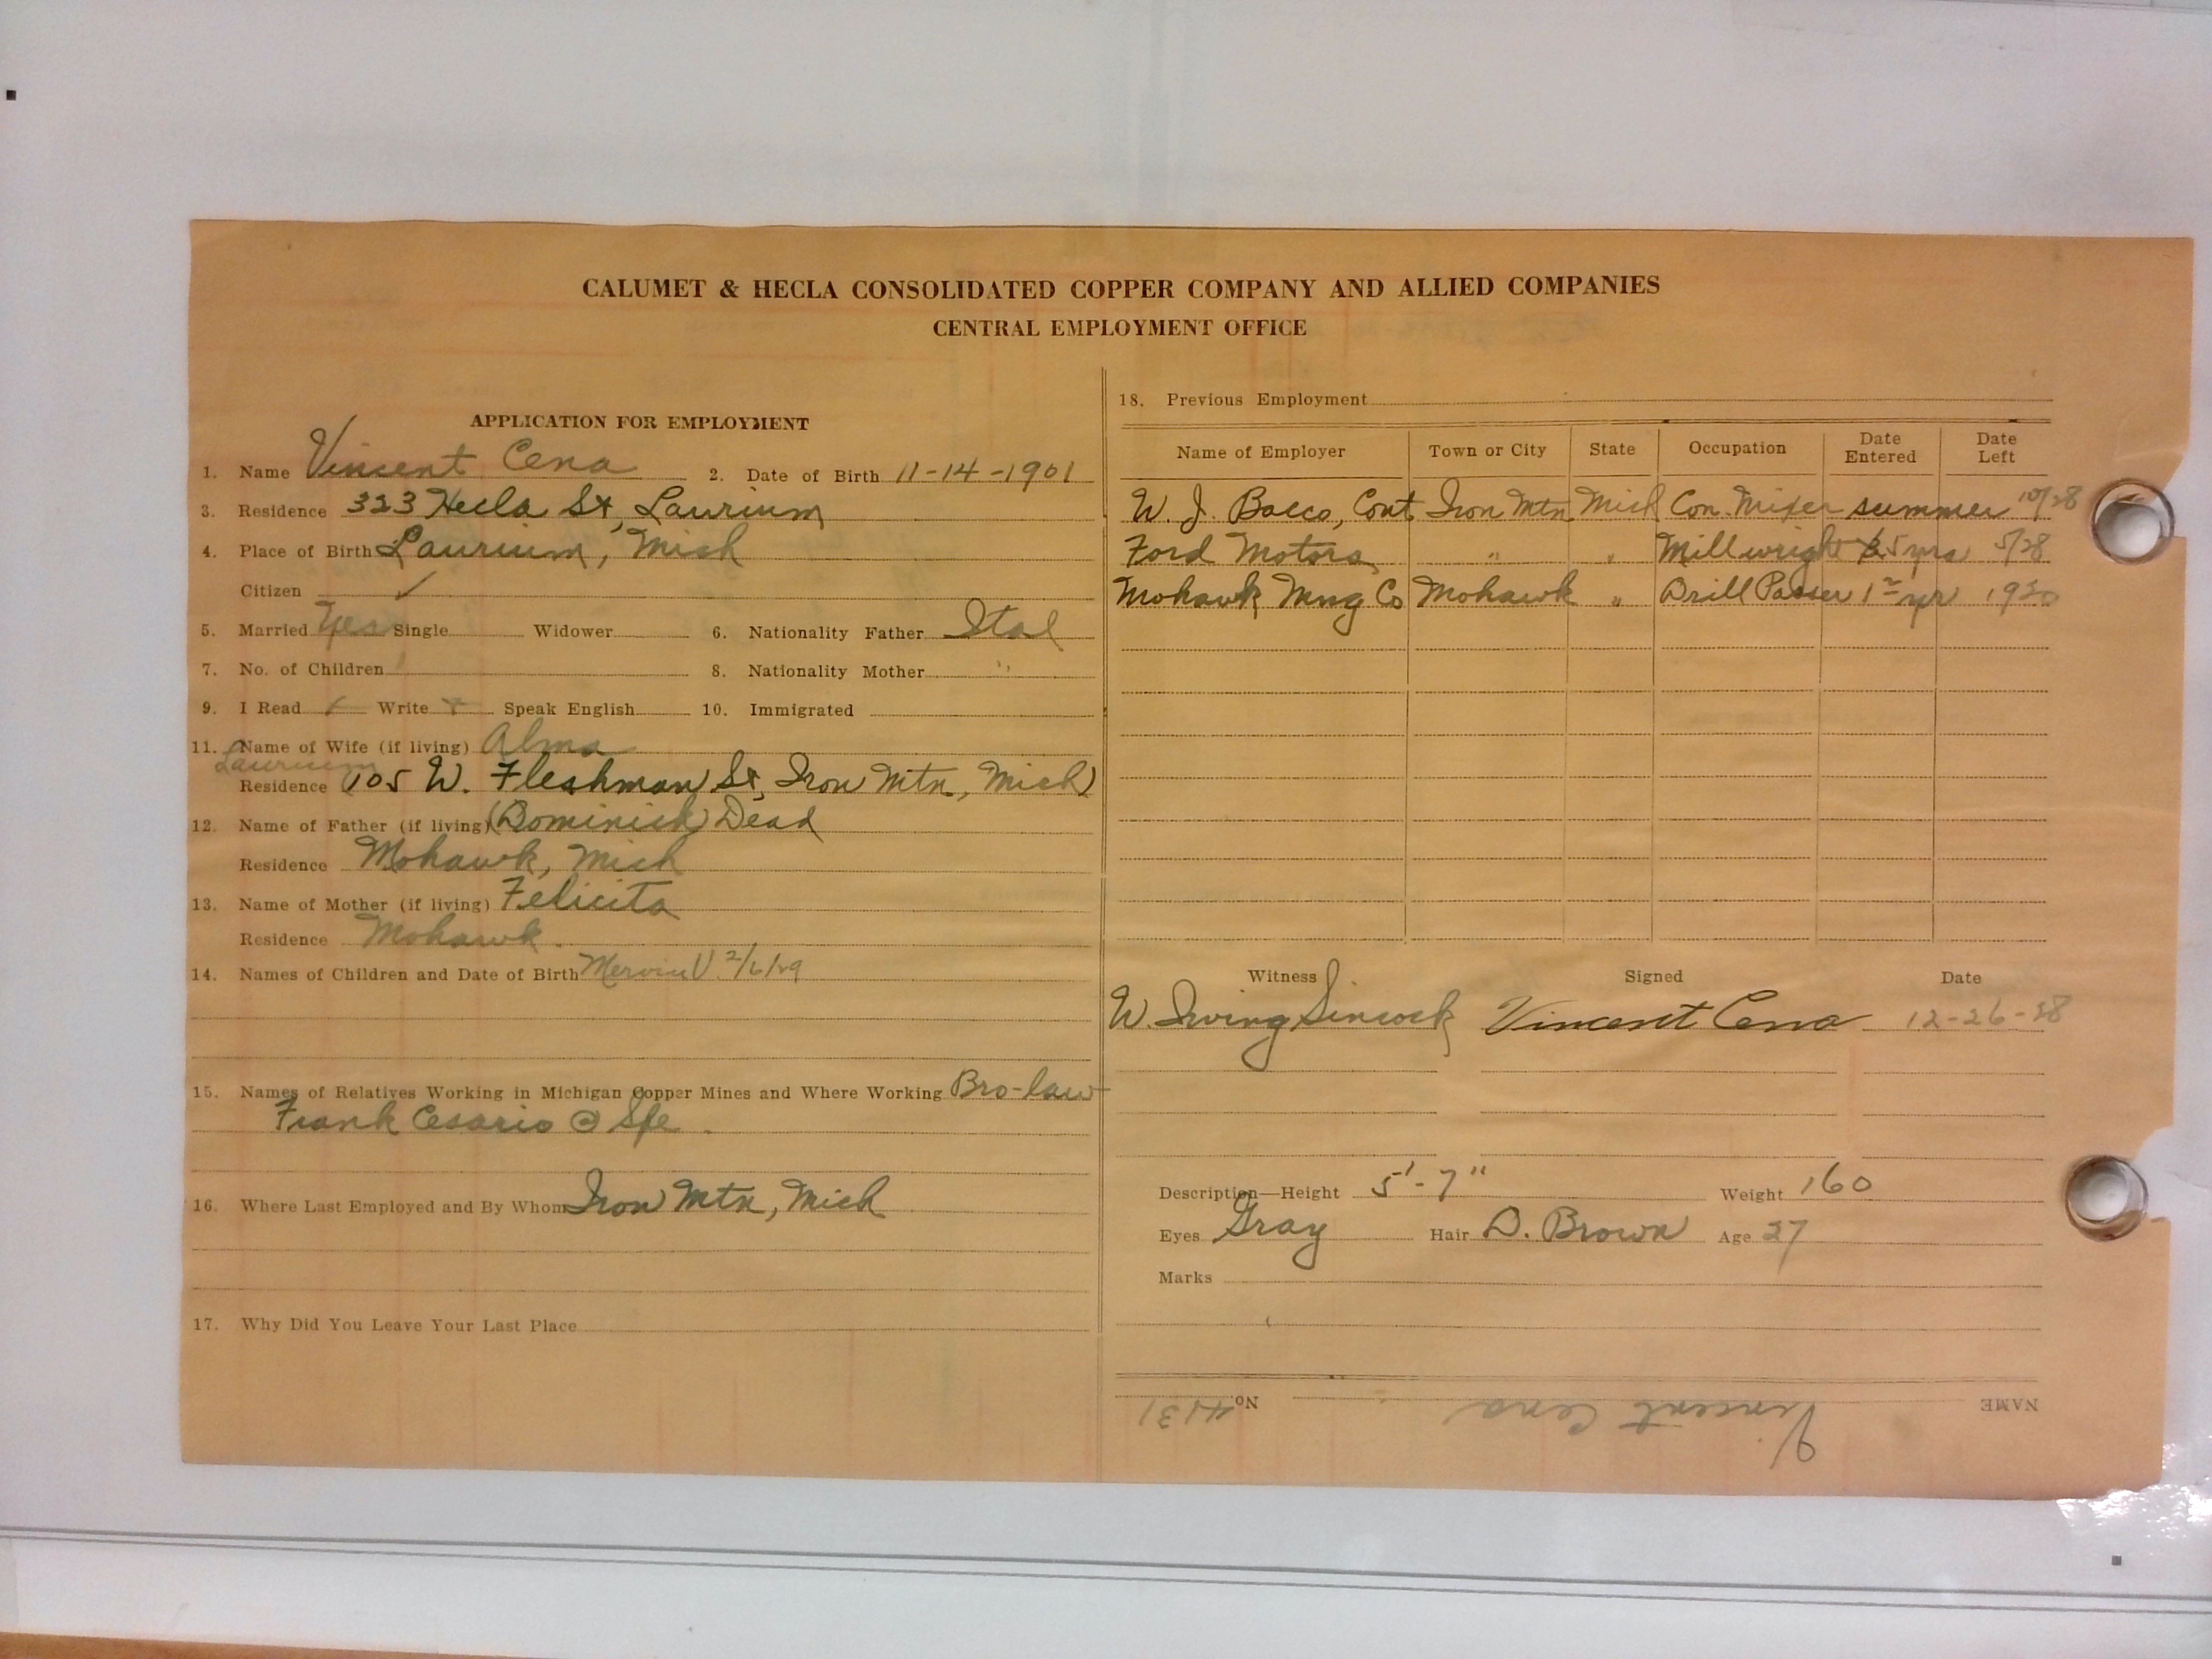 CALUMET & HECLA CONSOLIDATED COPPER COMPANY AND ALLIED COMPANIES
CENTRAL EMPLOYMENT OFFICE
APPLICATION FOR EMPLOYMENT
1. Name Vincent Cena 2. Date of Birth 11-14-1901
3. Residence 323 Hecla St, Laurium
4. Place of Birth Laurium, Mich
Citizen ✓
5. Married Yes Single Widower 6. Nationality Father Ital
7. No. of Children 8. Nationality Mother "
9. I Read ✓ Write Speak English 10. Immigrated
11. Name of Wife (if living) Alma
Laurium
Residence (105 W. Fleshman St, Iron Mtn, Mich)
12. Name of Father (if living) (Dominick) Dead
Residence Mohawk, Mich
13. Name of Mother (if living) Felicita
Residence Mohawk.
14. Names of Children and Date of Birth Mervin V. 2/6/29
15. Names of Relatives Working in Michigan Copper Mines and Where Working Bro-law
Frank Cesario @ Sfe.
16. Where Last Employed and By Whom Iron Mtn, Mich
17. Why Did You Leave Your Last Place
18. Previous Employment
Name of Employer Town or City State Occupation Date Entered Date Left
W. J. Bacco, Cont Iron Mtn Mich Con. Mixer summer 10/28
Ford Motors " " Millwright 5 yrs 5/28
Mohawk Mng Co Mohawk " Drill Passer 1 yr
Witness Signed Date
W. Irving Sincock Vincent Cena 12-26-28
Description—Height 5'-7" Weight 160
Eyes Gray Hair D. Brown Age 27
Marks
NAME Vincent Cena No. 4131